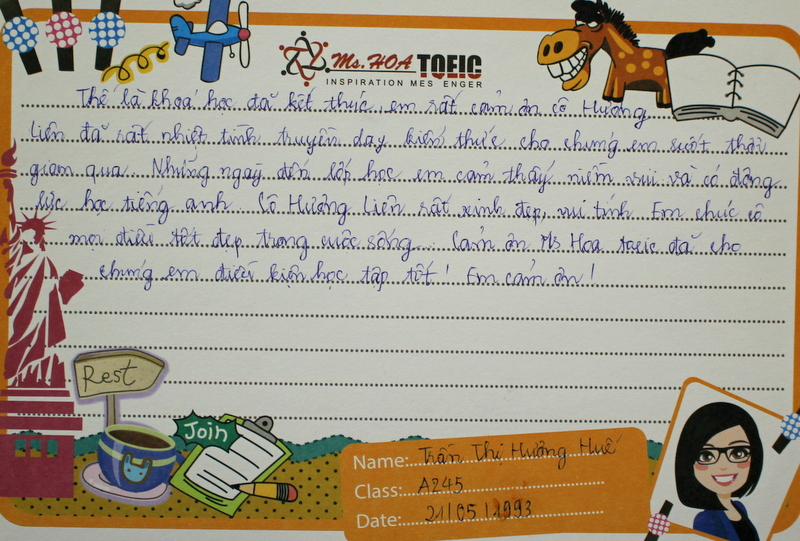 Ms. HOA TOEIC
INSPIRATION MES ENGER
Thế là khoá học đã kết thúc, em rất cảm ơn cô Hương
Liên đã rất nhiệt tình truyền dạy kiến thức cho chúng em suốt thời
gian qua. Những ngày đến lớp học em cảm thấy niềm vui và có động
lực học tiếng anh. Cô Hương Liên rất xinh đẹp, vui tính. Em chúc cô
mọi điều tốt đẹp trong cuộc sống... Cảm ơn Ms Hoa toeic đã cho
chúng em điều kiện học tập tốt! Em cảm ơn!
Rest
Join
Name: Trần Thị Hương Huế
Class: A245
Date: 21/05/1993